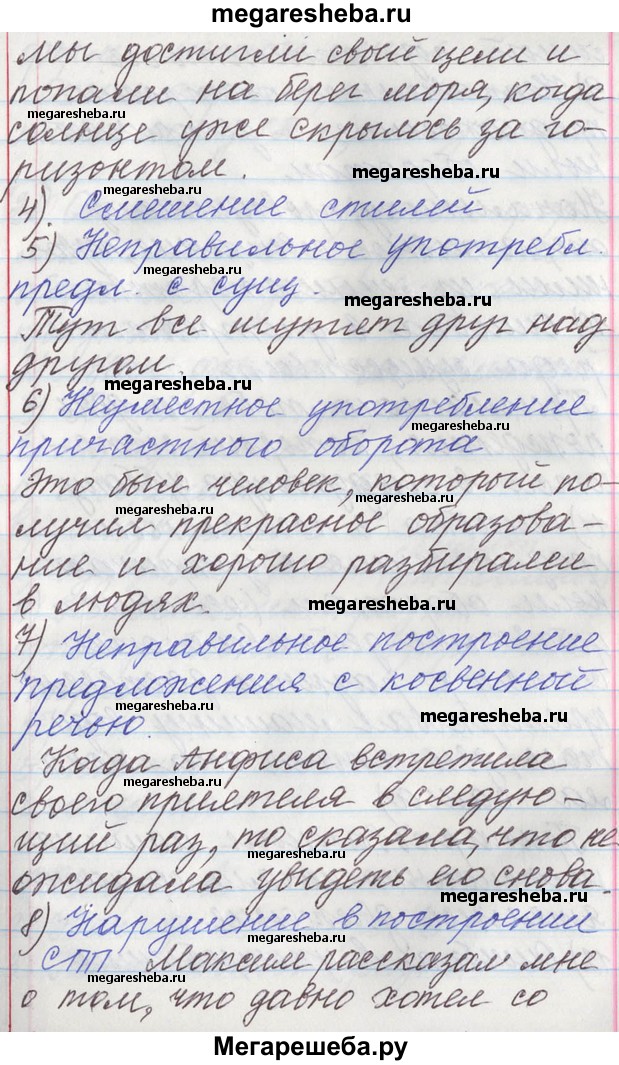 megaresheba.ru
мы достигли свый цели и
попали на берег моря, когда
megaresheba.ru
megaresheba.ru
солнце уже скрылось за го-
ризонтом.
megaresheba.ru
megaresheba.ru
4). Смешение стилей
5) Неправильное употребл.
megaresheba.ru
предл. с сущ.
megaresheba.ru
Тут все шутят друг над
другом.
megaresheba.ru
6) Неуместное употребление
megaresheba.ru
причастного оборота
Это был человек, который по-
megaresheba.ru
лучил прекрасное образова-
ние и хорошо разбирался
megaresheba.ru
в людях.
megaresheba.ru
7) Неправильное построение
megaresheba.ru
предложения с косвенной
речью.
megaresheba.ru
Когда Анфиса встретила
megaresheba.ru
своего приятеля в следую-
щий раз, то сказала, что не
megaresheba.ru
ожидала увидеть его снова.
megaresheba.ru
8) Нарушение в построении
megaresheba.ru
СПП Максим рассказал мне
megaresheba.ru
о том, что давно хотел со
Мегарешеба.ру